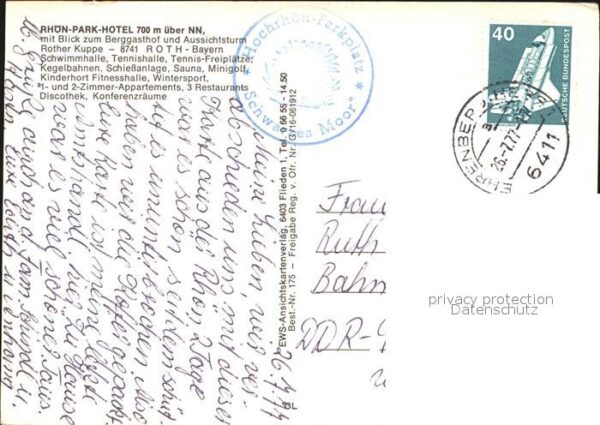 RHÖN-PARK-HOTEL 700 m über NN,
mit Blick zum Berggasthof und Aussichtsturm
Rother Kuppe – 8741 ROTH - Bayern
Schwimmhalle, Tennishalle, Tennis-Freiplätze,
Kegelbahnen, Schießanlage, Sauna, Minigolf,
Kinderhort Fitnesshalle, Wintersport,
1- und 2-Zimmer-Appartements, 3 Restaurants
Discothek, Konferenzräume
* Hochrhön-Parkplatz *
"Schwarzes Moor"
40
DEUTSCHE BUNDESPOST
EHRENBERG
26.7.77
6411
EWS-Ansichtskartenverlag, 6403 Flieden 1, Tel. 0 66 55 - 14 50
Best.-Nr. 175 – Freigabe Reg. v. Ofr. Nr. G/716-061912
26.7.77
Meine Lieben, wir ver-
abschieden uns mit dieser
Karte aus der Rhön. 2 Tage
war es schön, seitdem
ist es ununterbrochen
haben wir die Koffer gepackt.
Eure Karte ist meine
wir zu Hause
was es viel schöner
Gruß auch an d. Fam.
Frau
Ruth
Bahn
DDR-
privacy protection
Datenschutz